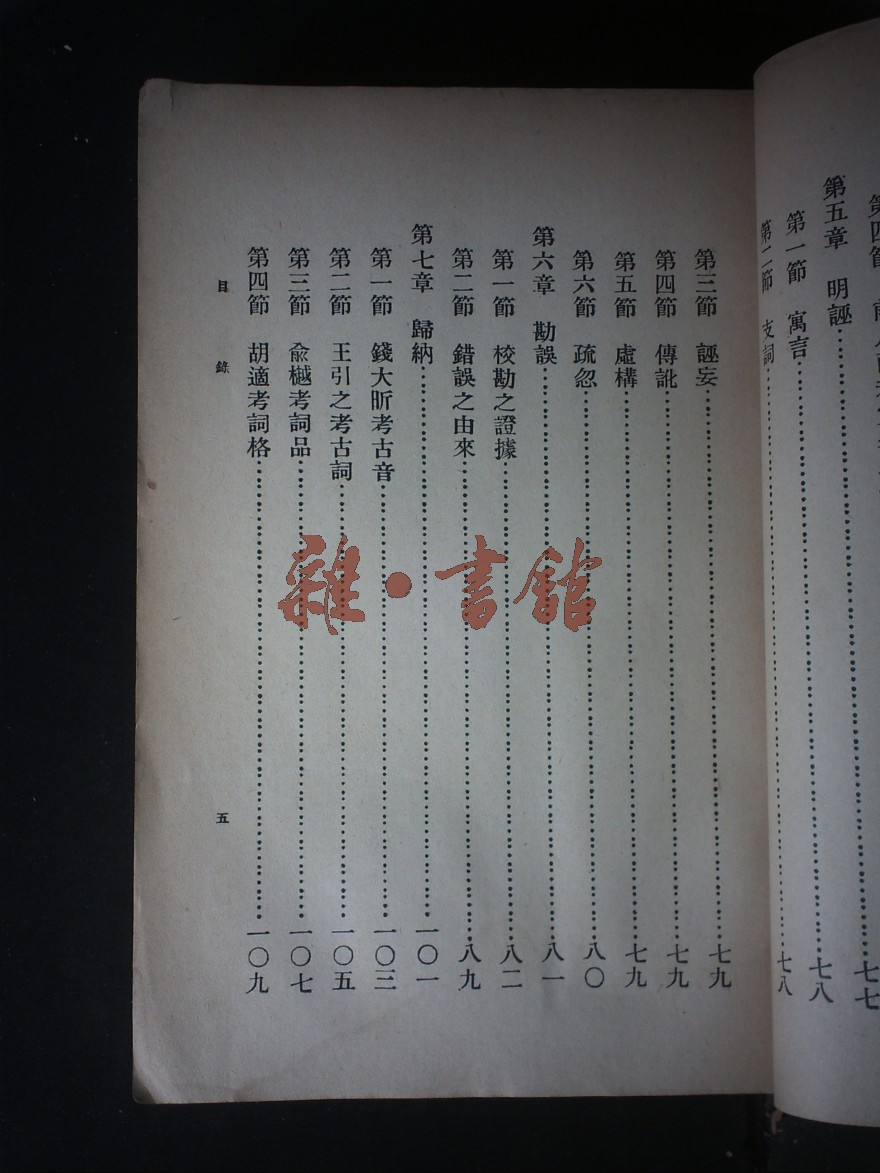 第四節
七七
第五章　明誣……七八
第一節　寓言……七八
第二節　支詞……七八
第三節　誣妄……七九
第四節　傳訛……七九
第五節　虛構……七九
第六節　疏忽……八〇
第六章　勘誤……八一
第一節　校勘之證據……八二
第二節　錯誤之由來……八九
第七章　歸納……一〇一
第一節　錢大昕考古音……一〇三
第二節　王引之考古詞……一〇五
第三節　俞樾考詞品……一〇七
第四節　胡適考詞格……一〇九
目錄
五
雜·書館